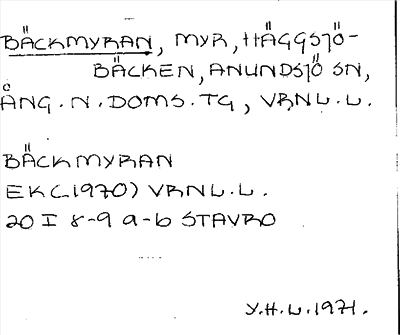 BÄCKMYRAN, MYR, HÄGGSJÖ-
BÄCKEN, ANUNDSJÖ SN,
ÅNG. N. DOMS. TG, VRNL. L.
BÄCKMYRAN
EK (1970) VRNL. L.
20 I 8-9 a-b STAVRO
Y.H.L. 1971.